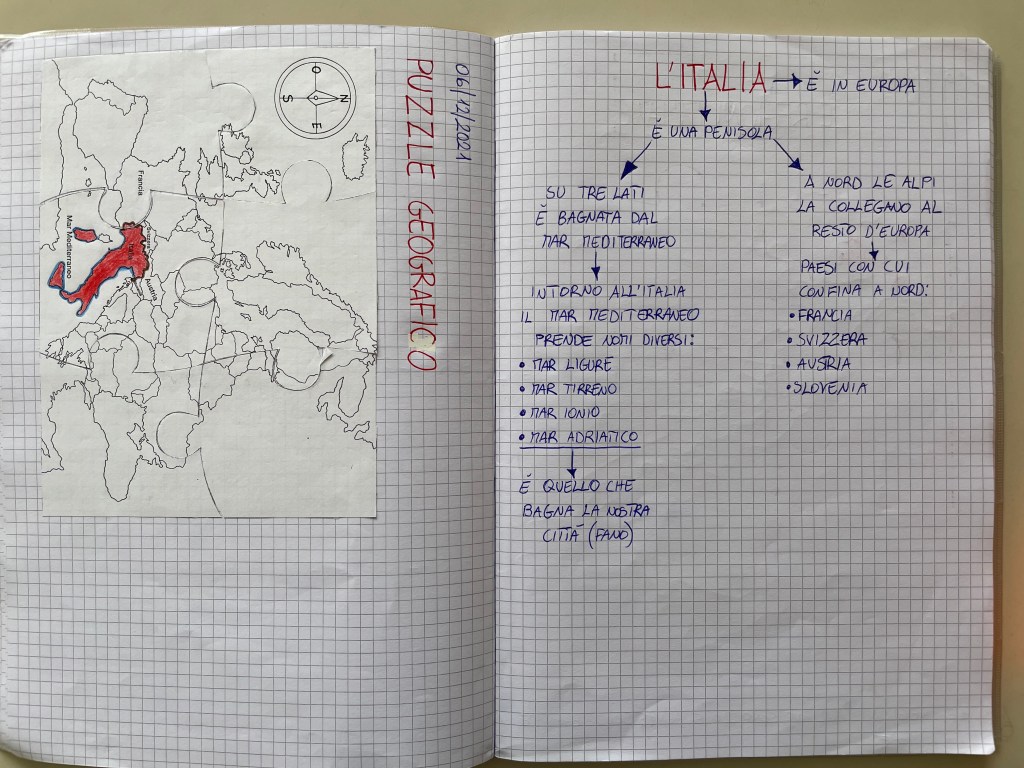 06/12/2021
PUZZLE GEOGRAFICO
N
O
E
S
Francia
Austria
Mar Mediterraneo
L'ITALIA → È IN EUROPA
È UNA PENISOLA
SU TRE LATI
È BAGNATA DAL
MAR MEDITERRANEO
INTORNO ALL'ITALIA
IL MAR MEDITERRANEO
PRENDE NOMI DIVERSI:
• MAR LIGURE
• MAR TIRRENO
• MAR IONIO
• MAR ADRIATICO
È QUELLO CHE
BAGNA LA NOSTRA
CITTÀ (FANO)
A NORD LE ALPI
LA COLLEGANO AL
RESTO D'EUROPA
PAESI CON CUI
CONFINA A NORD:
• FRANCIA
• SVIZZERA
• AUSTRIA
• SLOVENIA